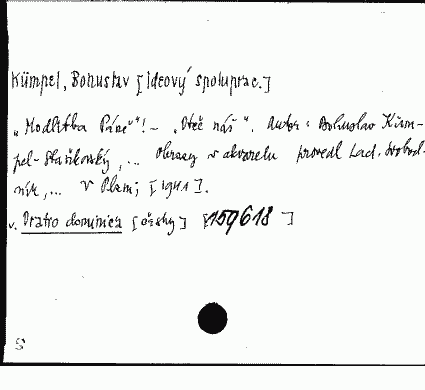 Kümpel, Bohuslav [Ideový spoluprac.]
„Modlitba Páně"! – „Otče náš". Autor: Bohuslav Küm-
pel-Staňkovský, ... Obrazy v akvarelu provedl Lad. Svobod-
ník, ... V Plzni, [1941].
v. Oratio dominica [česky] [159618]
S